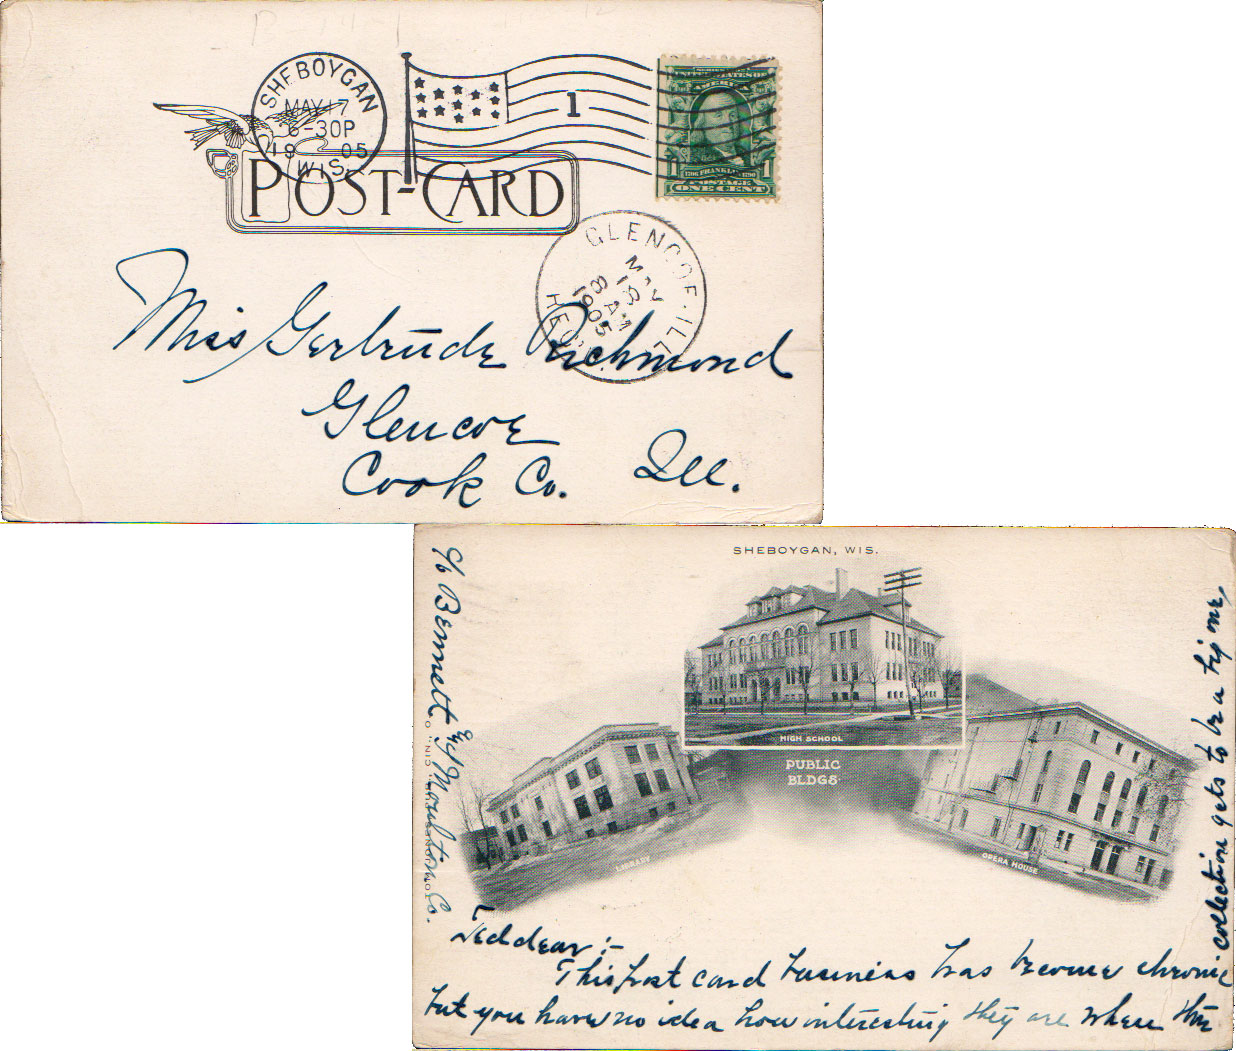 SHEBOYGAN
MAY 17
6-30P
19 05
WIS.
1
SERIES 1902
UNITED STATES OF
AMERICA
1706 FRANKLIN 1790
POSTAGE
1 1
ONE CENT
POST-CARD
GLENCOE·ILL.
MAY
18
8 AM
1905
Miss Gertrude Richmond
Glencoe
Cook Co. Ill.
SHEBOYGAN, WIS.
HIGH SCHOOL
PUBLIC
BLDGS
LIBRARY
OPERA HOUSE
Ted dear :-
This post card business has become chronic
but you have no idea how interesting they are when the
collection gets to be a big one,
c/o Bennett & Moulton Co.